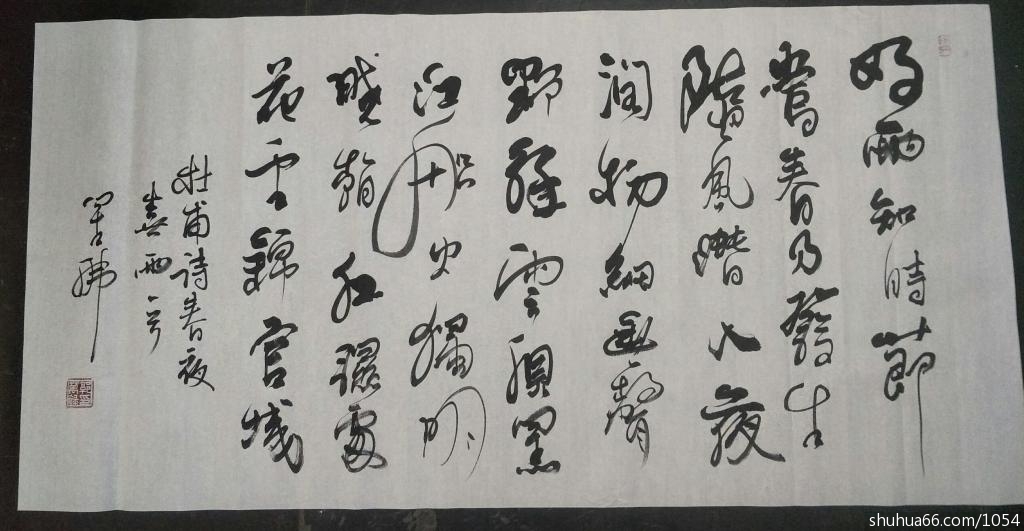 好雨知時節
當春乃發生
隨風潛入夜
潤物細無聲
野徑雲俱黑
江船火獨明
曉看紅濕處
花重錦官城
杜甫詩春夜
喜雨
shuhua66.com/1054